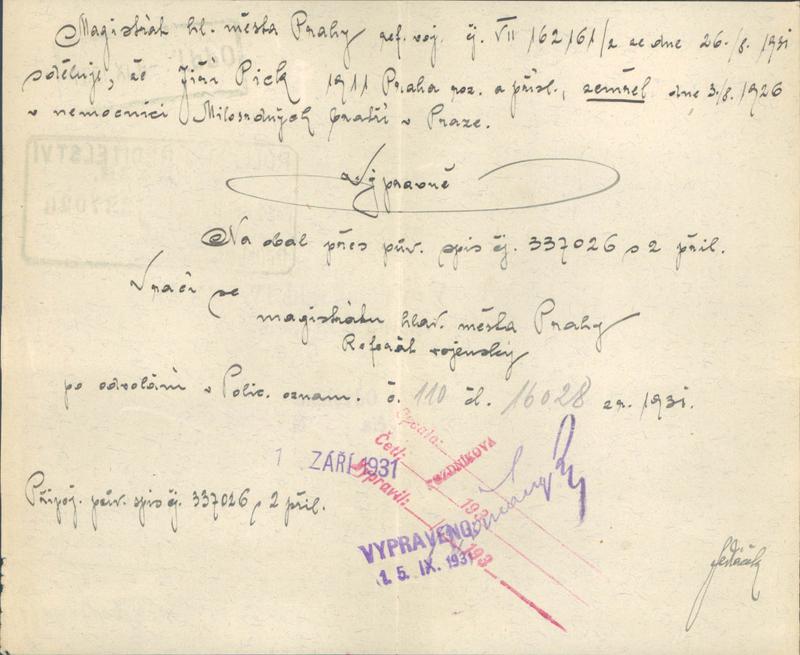 Magistrát hl. města Prahy ref. voj. čj. VII 162161/2 ze dne 26./8. 1931
sděluje, že Jiří Pick 1911 Praha roz. a přísl., zemřel dne 3./8. 1926
v nemocnici Milosrdných bratří v Praze.
Výpravně
Na obal přes pův. spis čj. 337026 s 2 příl.
Vrací se
magistrátu hlav. města Prahy
Referát vojenský
po odvolání v Polic. oznam. č. 110 čl. 16028 z r. 1931.
Opsala:
Četl:
POZDNÍKOVA
1 ZÁŘÍ 1931
Vypravih. 193
Připoj. pův. spis čj. 337026 s 2 příl.
VYPRAVENO 193
15. IX. 1931